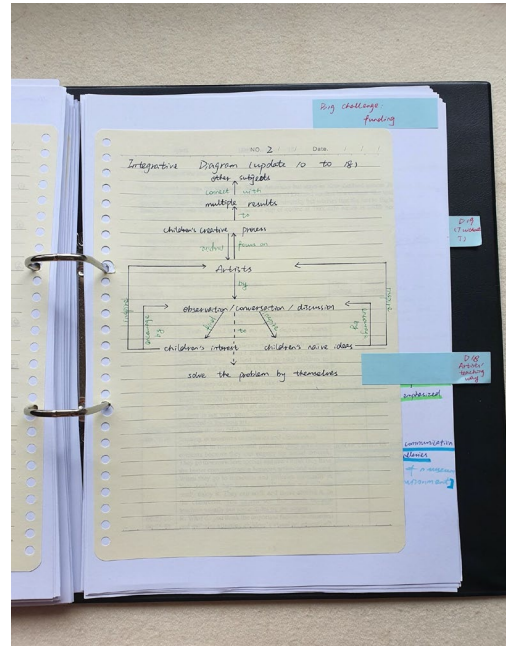 D.19 challenge:
funding
NO. 2 Date
Integrative Diagram (update 10 to 18)
other subjects
connect with
multiple results
to
children's creative process
focus on
Artists
by
observation / conversation / discussion
to
children's interest children's naive ideas
solve the problem by themselves
by
by
D.18
Artists'
teaching
way
emphasized
communication